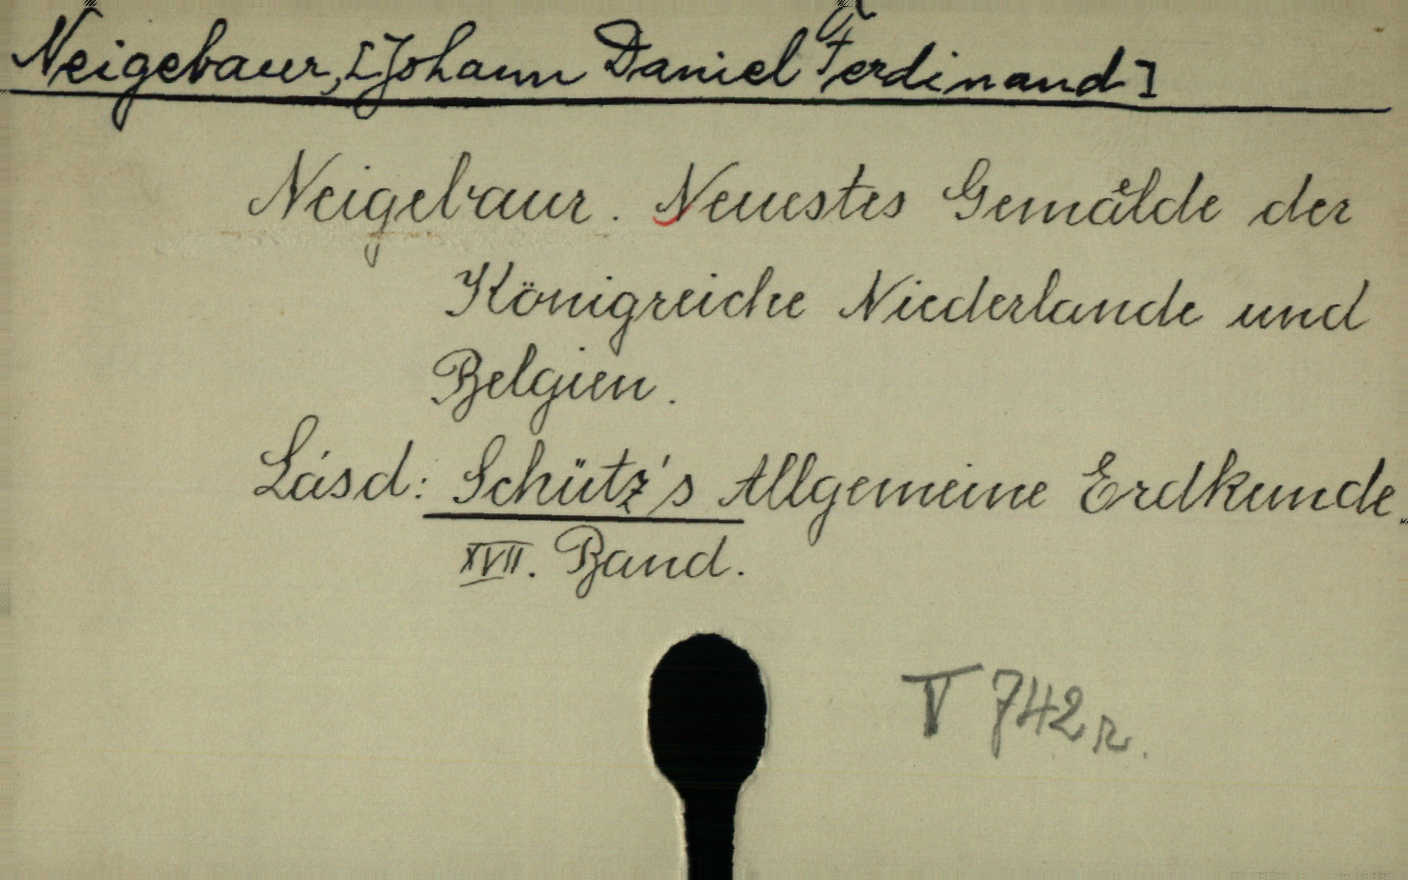 Neigebaur, [Johann Daniel Ferdinand]
Neigebaur. Neuestes Gemälde der
Königreiche Niederlande und
Belgien.
Lásd: Schütz's Allgemeine Erdkunde.
XVII. Band.
V 742 r.